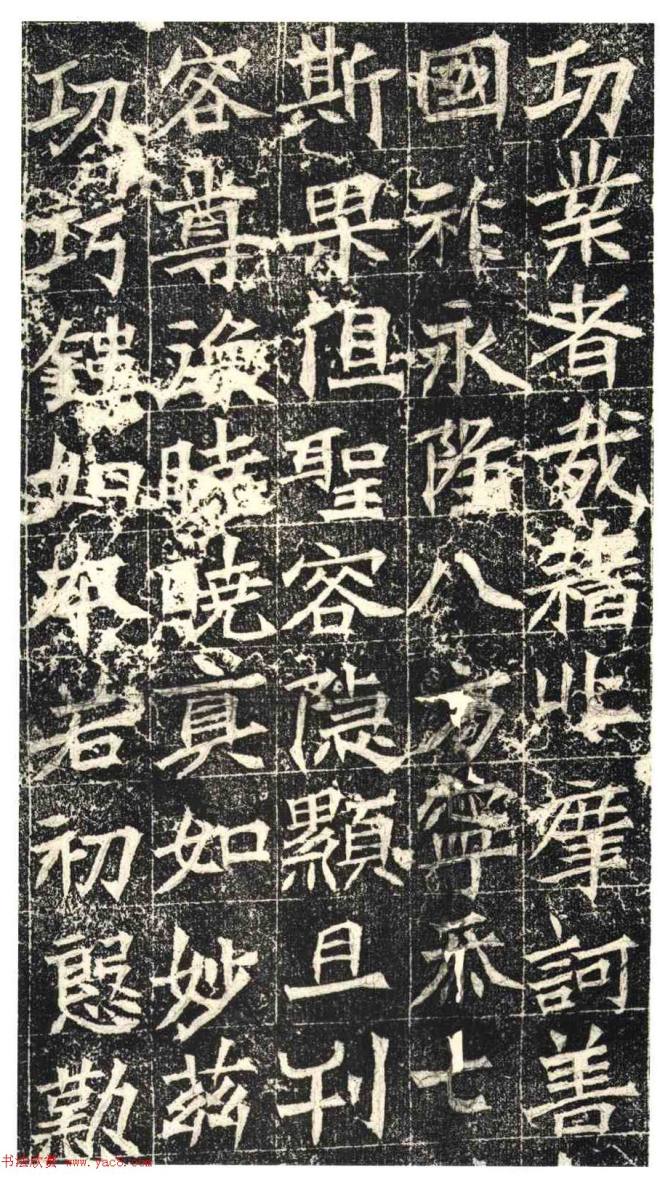 功業者哉藉此摩訶善
國祚永隆八方寧七
斯果但聖容隱顯且刊
容尊曉曉真如妙茲
功巧鏤如本若初慇懃
书法欣赏 www.yac8.com